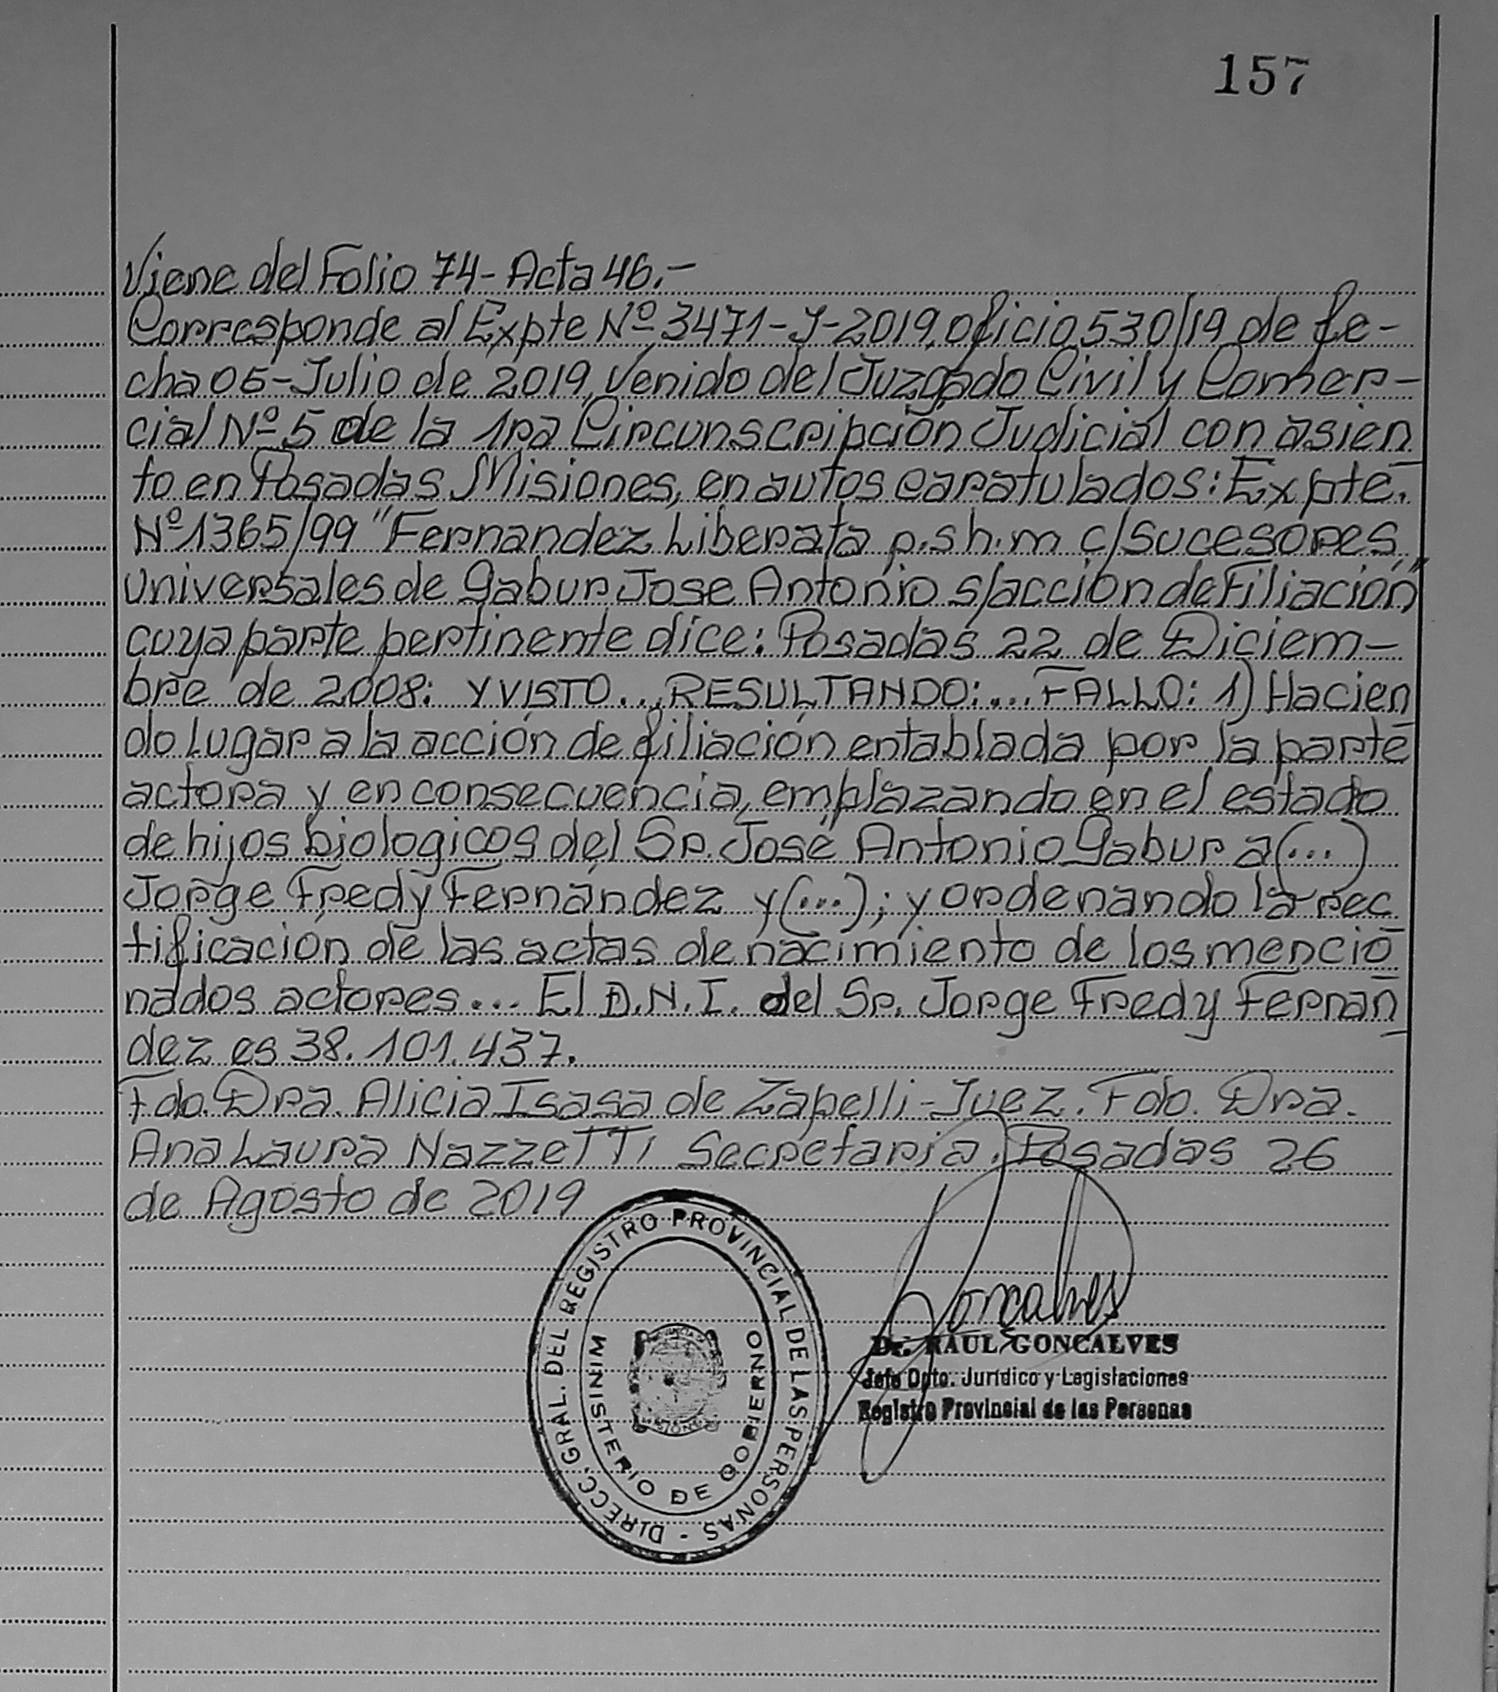 157
Viene del Folio 74- Acta 46.-
Corresponde al Expte Nº 3471-J-2019, oficio 530/19 de fe-
cha 05-Julio de 2019, Venido del Juzgado Civil y Comer-
cial Nº 5 de la 1ra Circunscripción Judicial con asien
to en Posadas Misiones, en autos caratulados: Expte.
Nº 1365/99 "Fernandez Liberata p.s.h.m c/sucesores
universales de Gabur Jose Antonio s/acción de Filiación"
cuya parte pertinente dice: Posadas 22 de Diciem-
bre de 2008: Y VISTO... RESULTANDO:... FALLO: 1) Hacien
do Lugar a la acción de filiación entablada por la parte
actora y en consecuencia, emplazando en el estado
de hijos biologicos del Sr. José Antonio Gabur a (...)
Jorge Fredy Fernández y (...); y ordenando la rec
tificación de las actas de nacimiento de los mencio
nados actores... El D.N.I. del Sr. Jorge Fredy Fernán
dez es 38.101.437.
Fdo. Dra. Alicia Isasa de Zapelli-Juez. Fdo. Dra.
Ana Laura Nazzetti Secretaria. Posadas 26
de Agosto de 2019
DIRECC. GRAL. DEL REGISTRO PROVINCIAL DE LAS PERSONAS -
MINISTERIO DE GOBIERNO
Goncalves
Dr. RAUL GONCALVES
Jefe Dpto. Jurídico y Legislaciones
Registro Provincial de las Personas